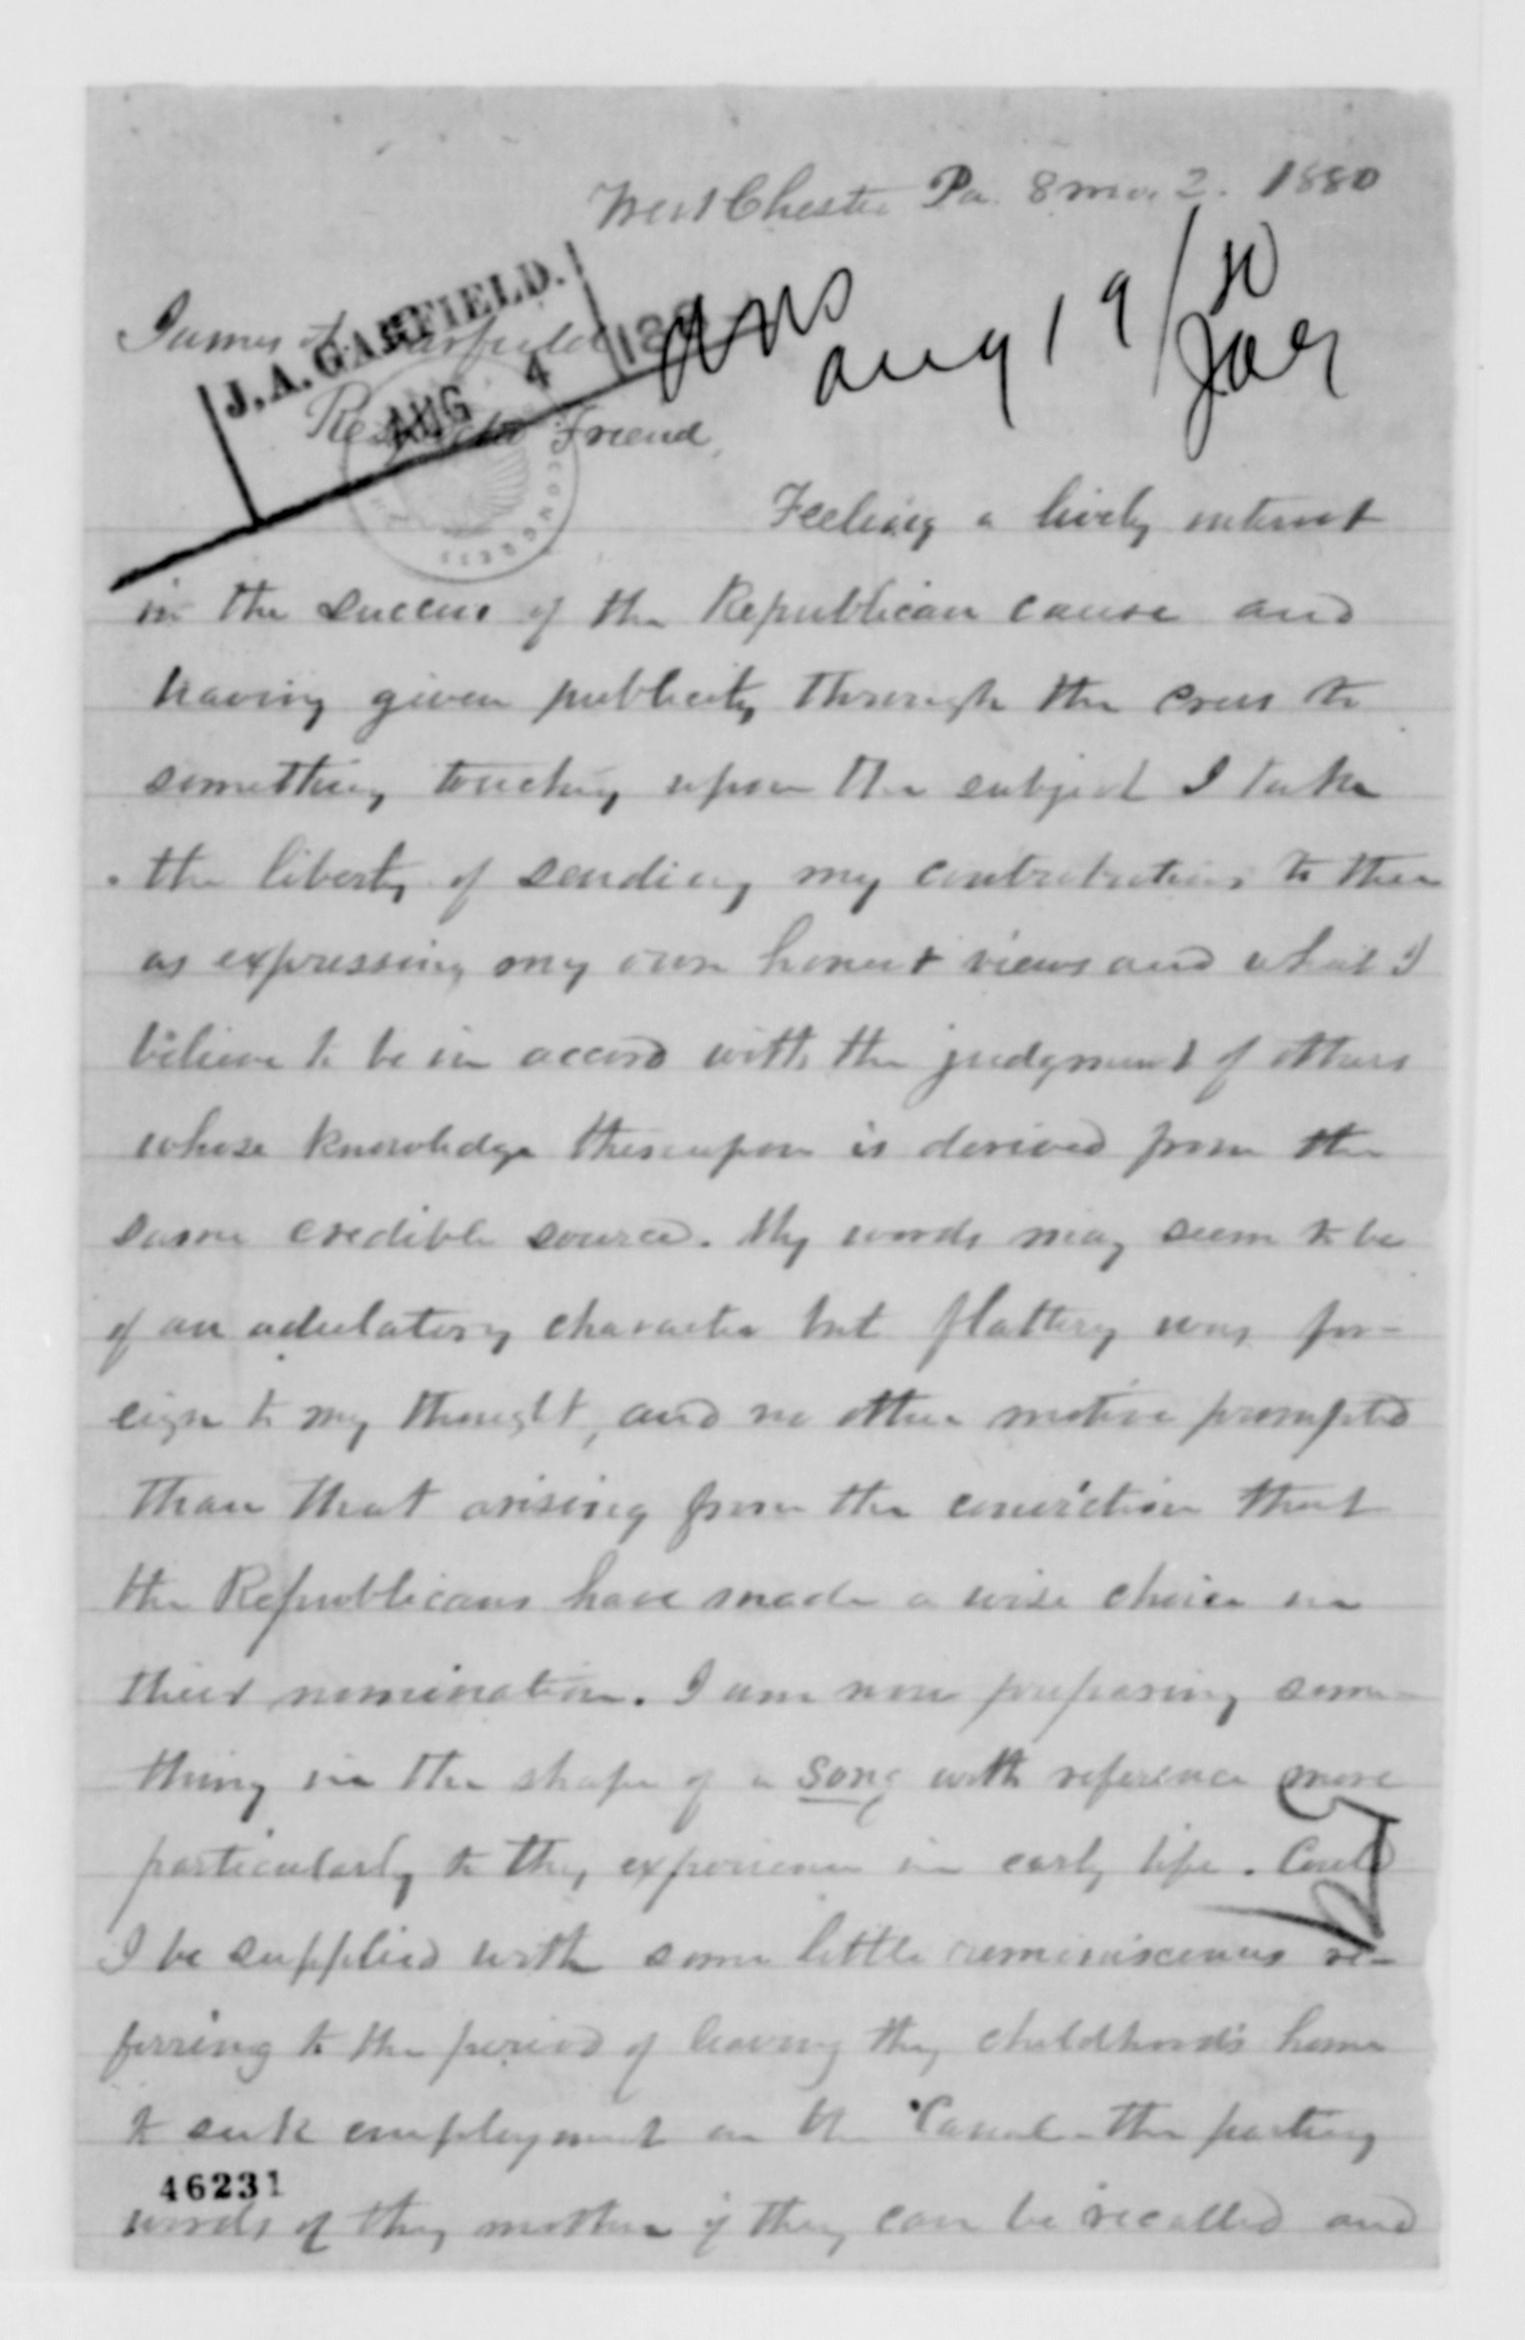 West Chester Pa. 8 mo. 2. 1880
J. A. GARFIELD.
AUG 4 188
Ans
Aug 19/80
James A Garfield
Respected Friend,
CONGRESS
Feeling a lively interest
in the success of the Republican cause and
having given publicity through the press to
something touching upon the subject I take
the liberty of sending my contributions to thee
as expressing my own honest views and what I
believe to be in accord with the judgment of others
whose knowledge thereupon is derived from the
same credible source. My words may seem to be
of an adulatory character but flattery was for-
eign to my thought, and no other motive prompted
than that arising from the conviction that
the Republicans have made a wise choice in
their nomination. I am now preparing some-
thing in the shape of a song with reference more
particularly to thy experience in early life. Could
I be supplied with some little reminiscences re-
ferring to the period of leaving thy childhood's home
to seek employment on the Canal - the parting
46231
words of thy mother if they can be recalled and